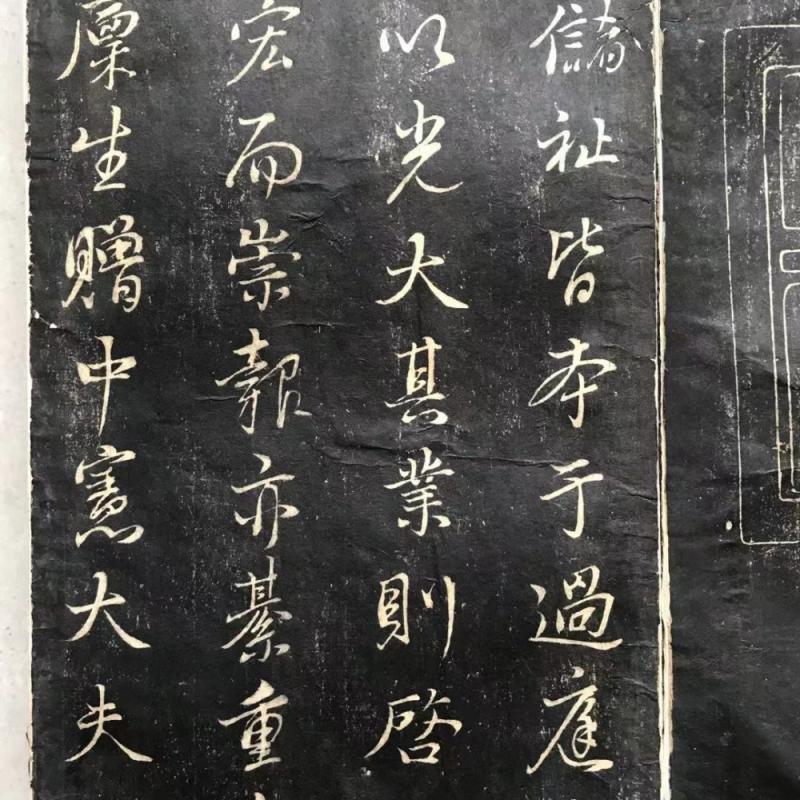 儲祉皆本于過庭
以光大其業則啓
宏而崇報亦綦重
廩生贈中憲大夫